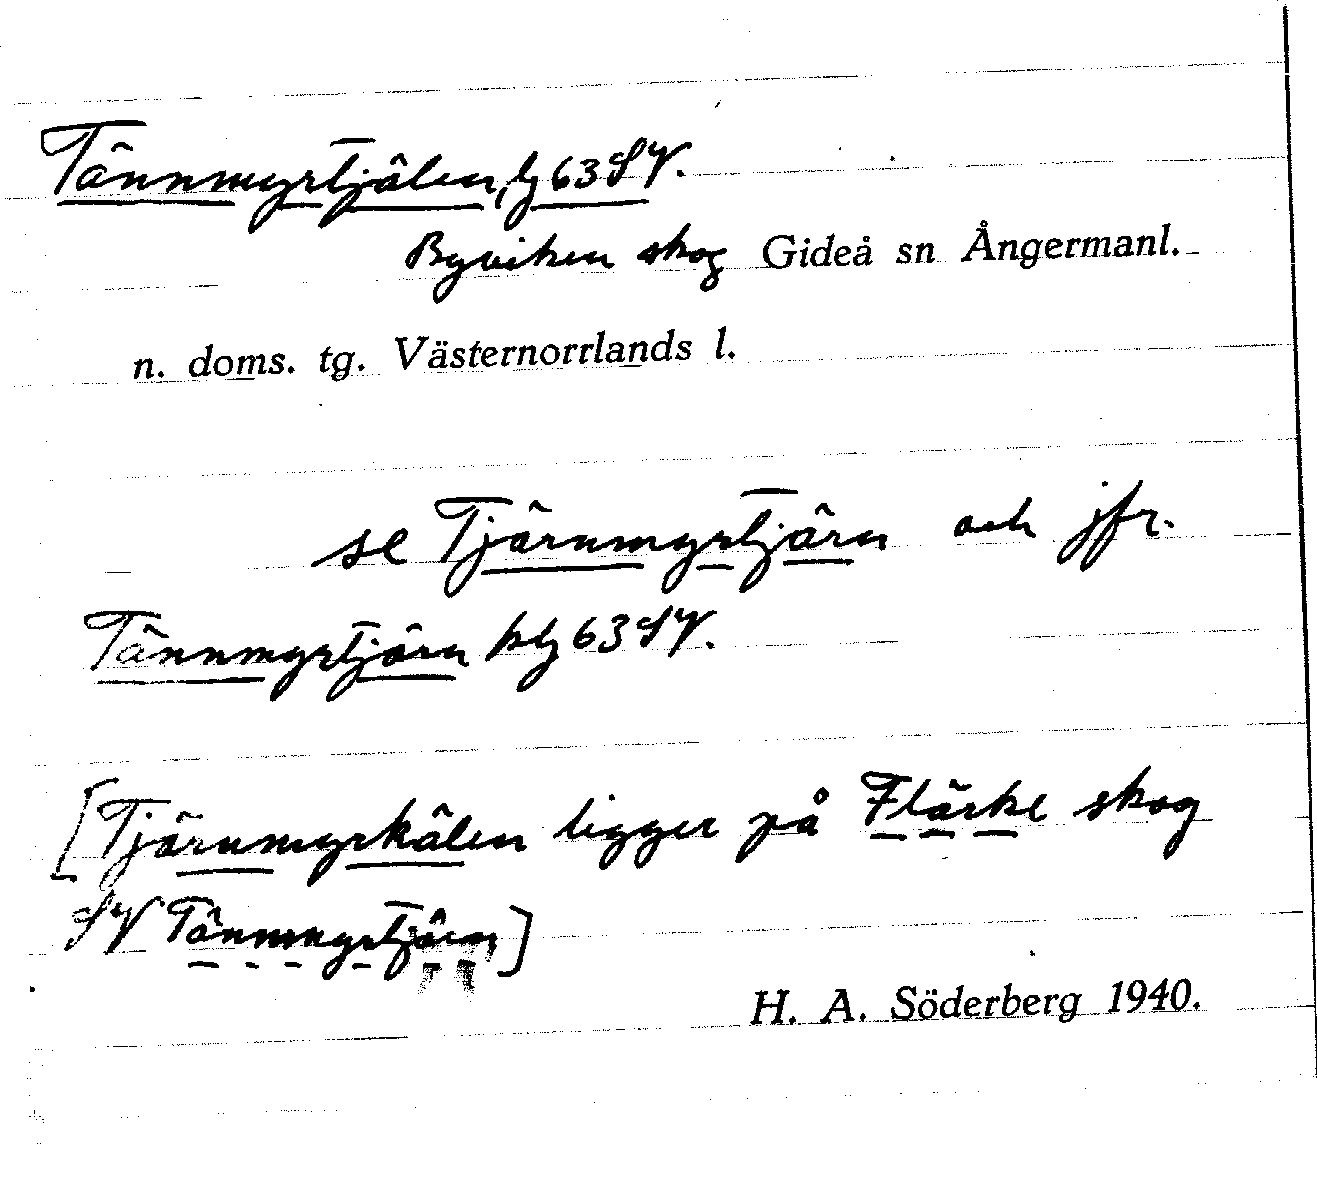 Tännmyrtjälen, lj 63 SV.
Byviken skog Gideå sn Ångermanl.
n. doms. tg. Västernorrlands l.
se Tjärnmyrtjärn och jfr.
Tännmyrtjärn blj 63 SV.
[Tjärnmyrkälen ligger på Flärke skog
SV Tännmyrtjärn]
H. A. Söderberg 1940.